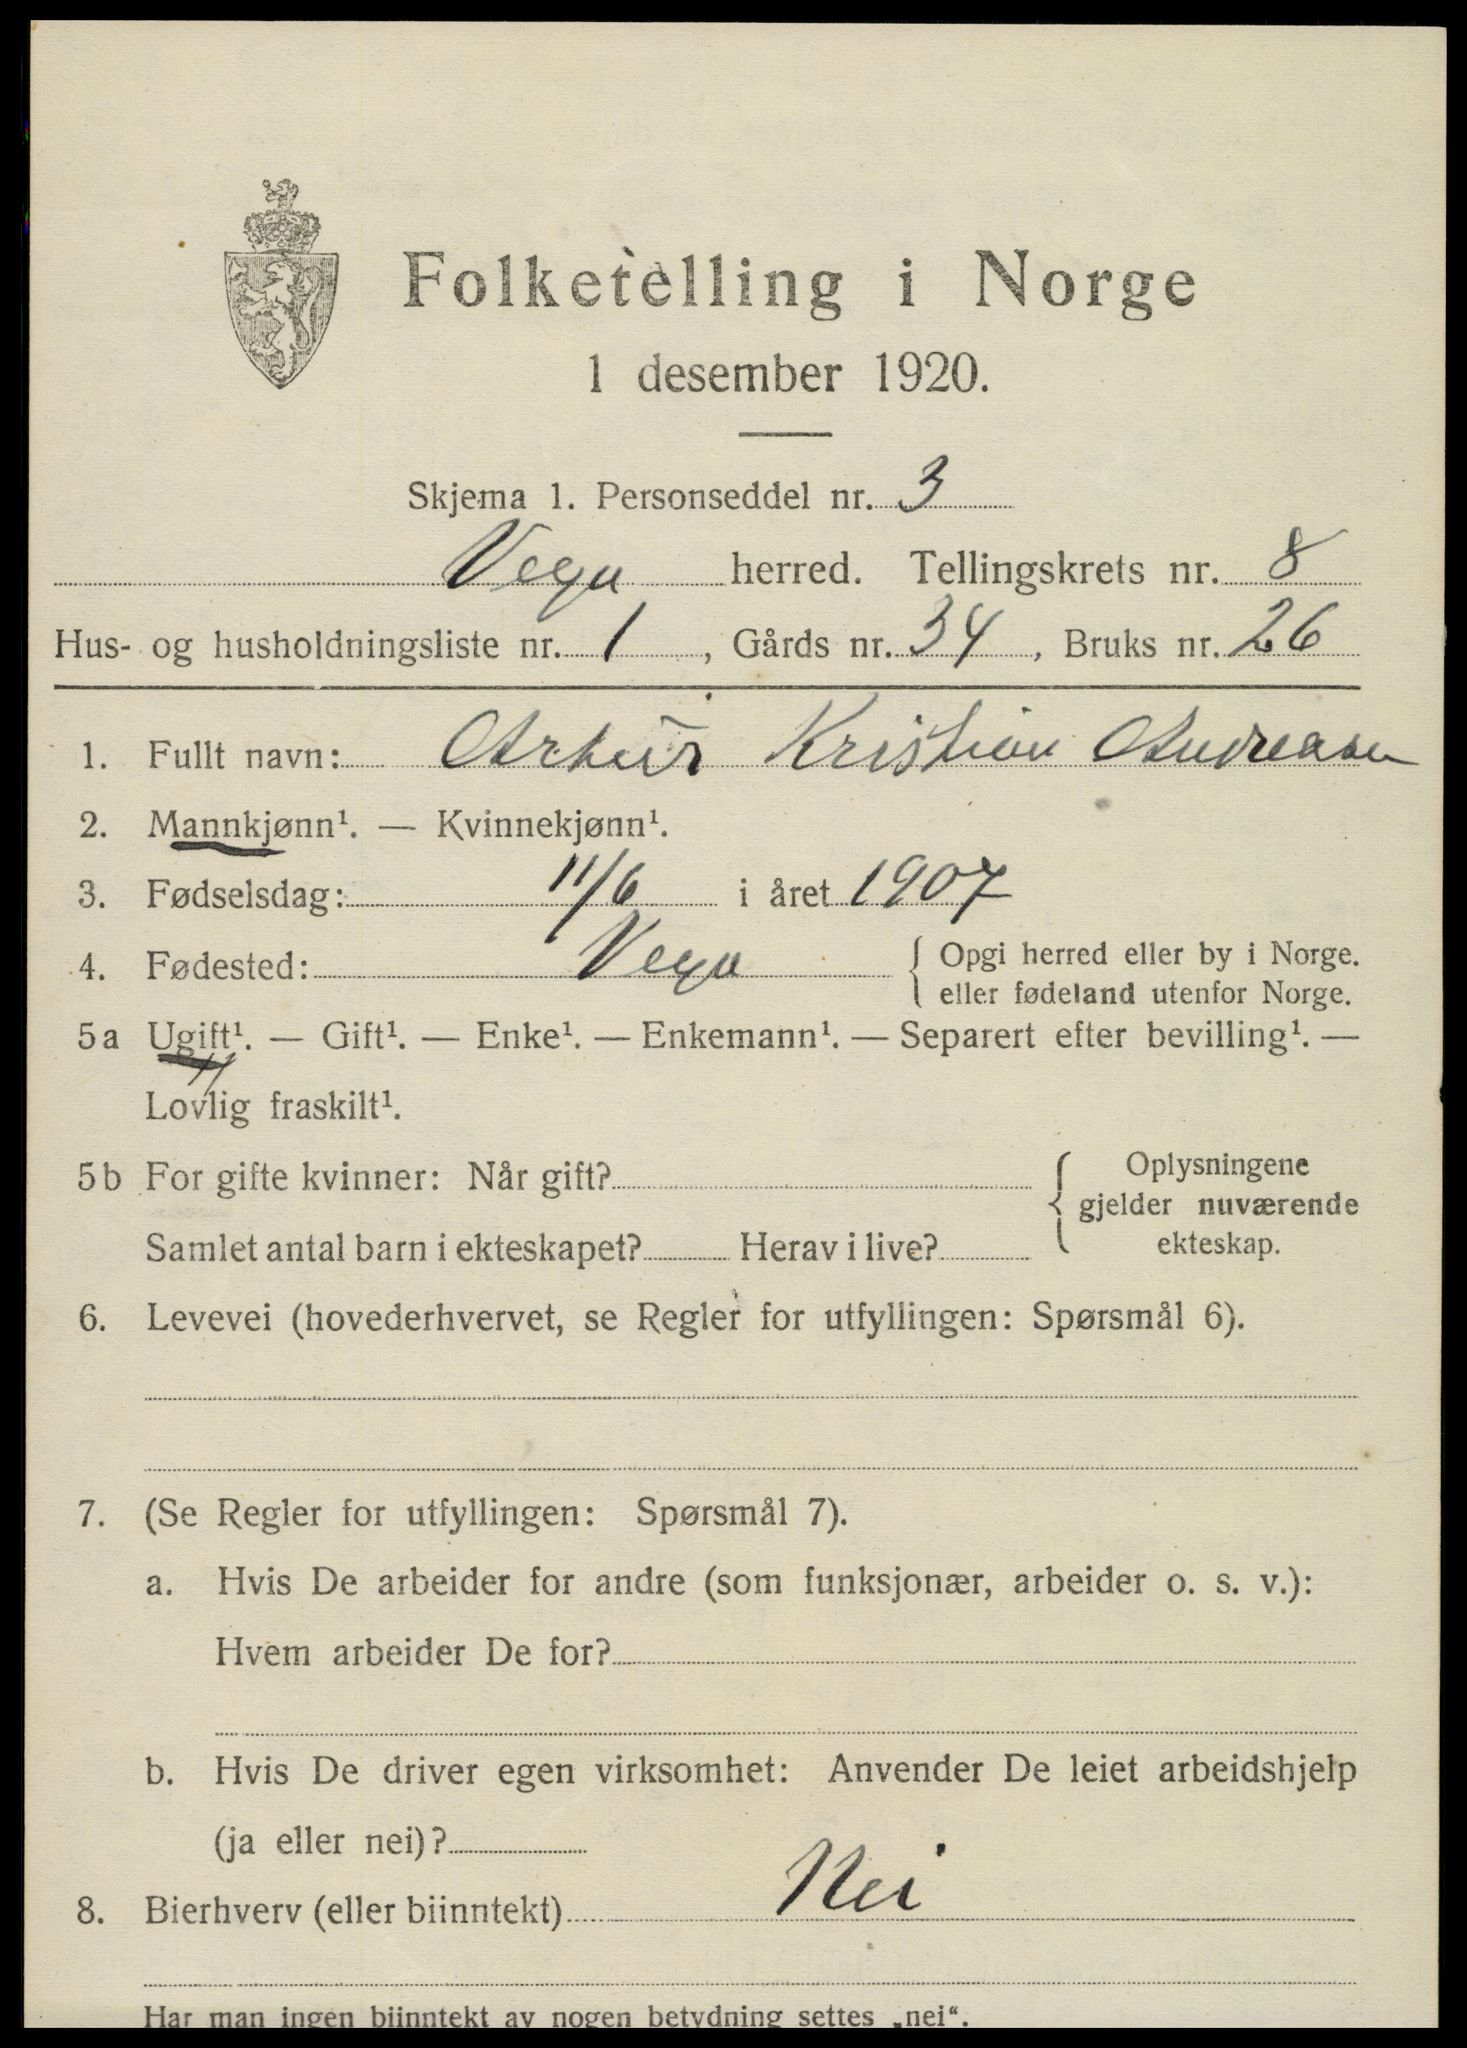 Folketelling i Norge
1 desember 1920.
Skjema 1. Personseddel nr. 3
Vega herred. Tellingskrets nr. 8
Hus- og husholdningsliste nr. 1, Gårds nr. 34, Bruks nr. 26
1. Fullt navn: Artur Kristian Andreasen
2. Mannkjønn¹. — Kvinnekjønn¹.
3. Fødselsdag: 11/6 i året 1907
4. Fødested: Vega { Opgi herred eller by i Norge.
eller fødeland utenfor Norge.
5a Ugift¹. — Gift¹. — Enke¹. — Enkemann¹. — Separert efter bevilling¹. —
Lovlig fraskilt¹.
5b For gifte kvinner: Når gift? { Oplysningene
gjelder nuværende
Samlet antal barn i ekteskapet? Herav i live? ekteskap.
6. Levevei (hovederhvervet, se Regler for utfyllingen: Spørsmål 6).
7. (Se Regler for utfyllingen: Spørsmål 7).
a. Hvis De arbeider for andre (som funksjonær, arbeider o. s. v.):
Hvem arbeider De for?
b. Hvis De driver egen virksomhet: Anvender De leiet arbeidshjelp
(ja eller nei)?
8. Bierhverv (eller biinntekt) Nei
Har man ingen biinntekt av nogen betydning settes „nei“.